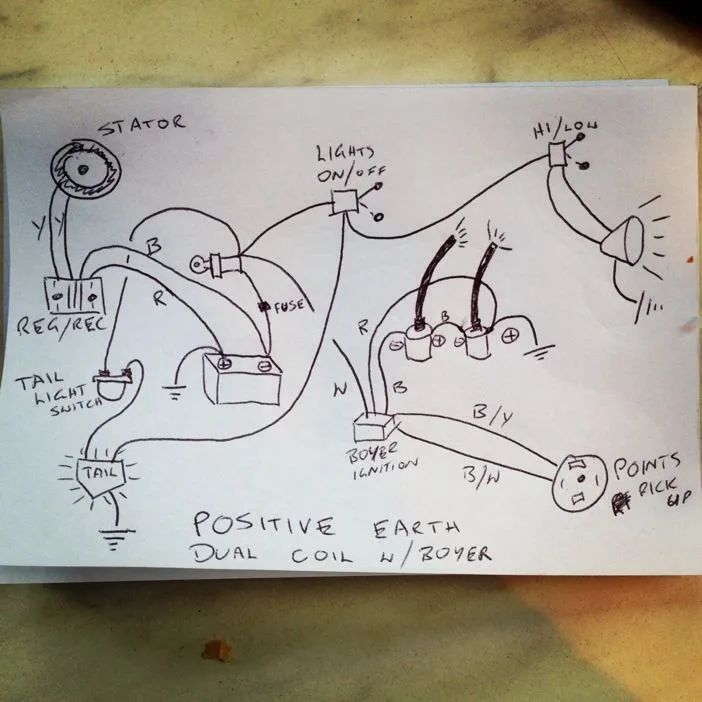 STATOR
HI/LOW
LIGHTS
ON/OFF
Y
Y
B
R
FUSE
REG/REC
+
-
R
B
-
-
+
TAIL
LIGHT
SWITCH
W
B
B/Y
BOYER
IGNITION
B/W
POINTS
PICK
UP
TAIL
POSITIVE EARTH
DUAL COIL W/BOYER